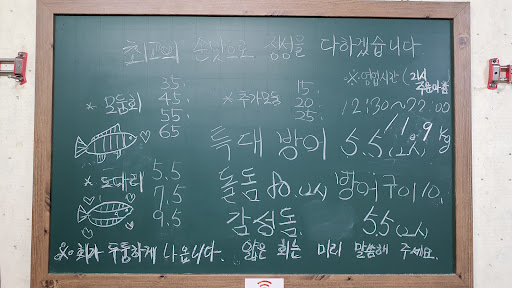 최고의 손맛으로 정성을 다하겠습니다.
※영업시간 (21시 주문마감
12:30~22:00
※ 모둠회 35. 45. 55. 65
※ 추가모둠 15. 20. 25.
11.9 kg
특대 방어 5.5 (2人)
※ 도다리 5.5 7.5 9.5
돌돔 80. (2人) 방어구이 10.
감성돔. 55 (2人)
※ 회가 두툼하게 나옵니다. 얇은 회는 미리 말씀해 주세요.